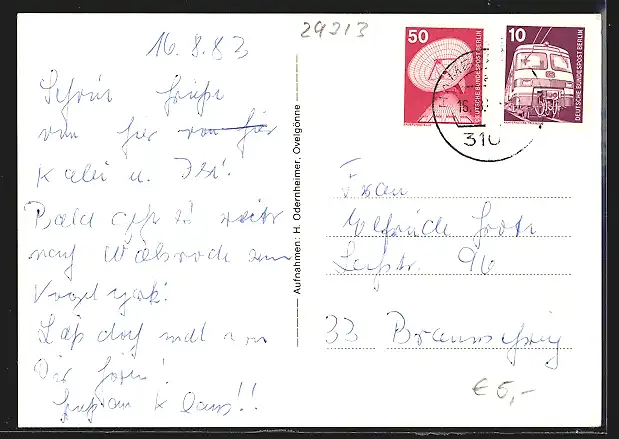 16.8.83
Schöne Grüße
von hier von hier
Kalli u.
Bald geht es weiter
nach Walsrode zum
Vogelpark!
Laß doch mal von
Dir hören!
Gruß an Klaus!!
29213
Aufnahmen: H. Odernheimer, Ovelgönne
50
DEUTSCHE BUNDESPOST BERLIN
10
DEUTSCHE BUNDESPOST BERLIN
310
Frau
Elfriede
96
33 Braunschweig
€ 5,-